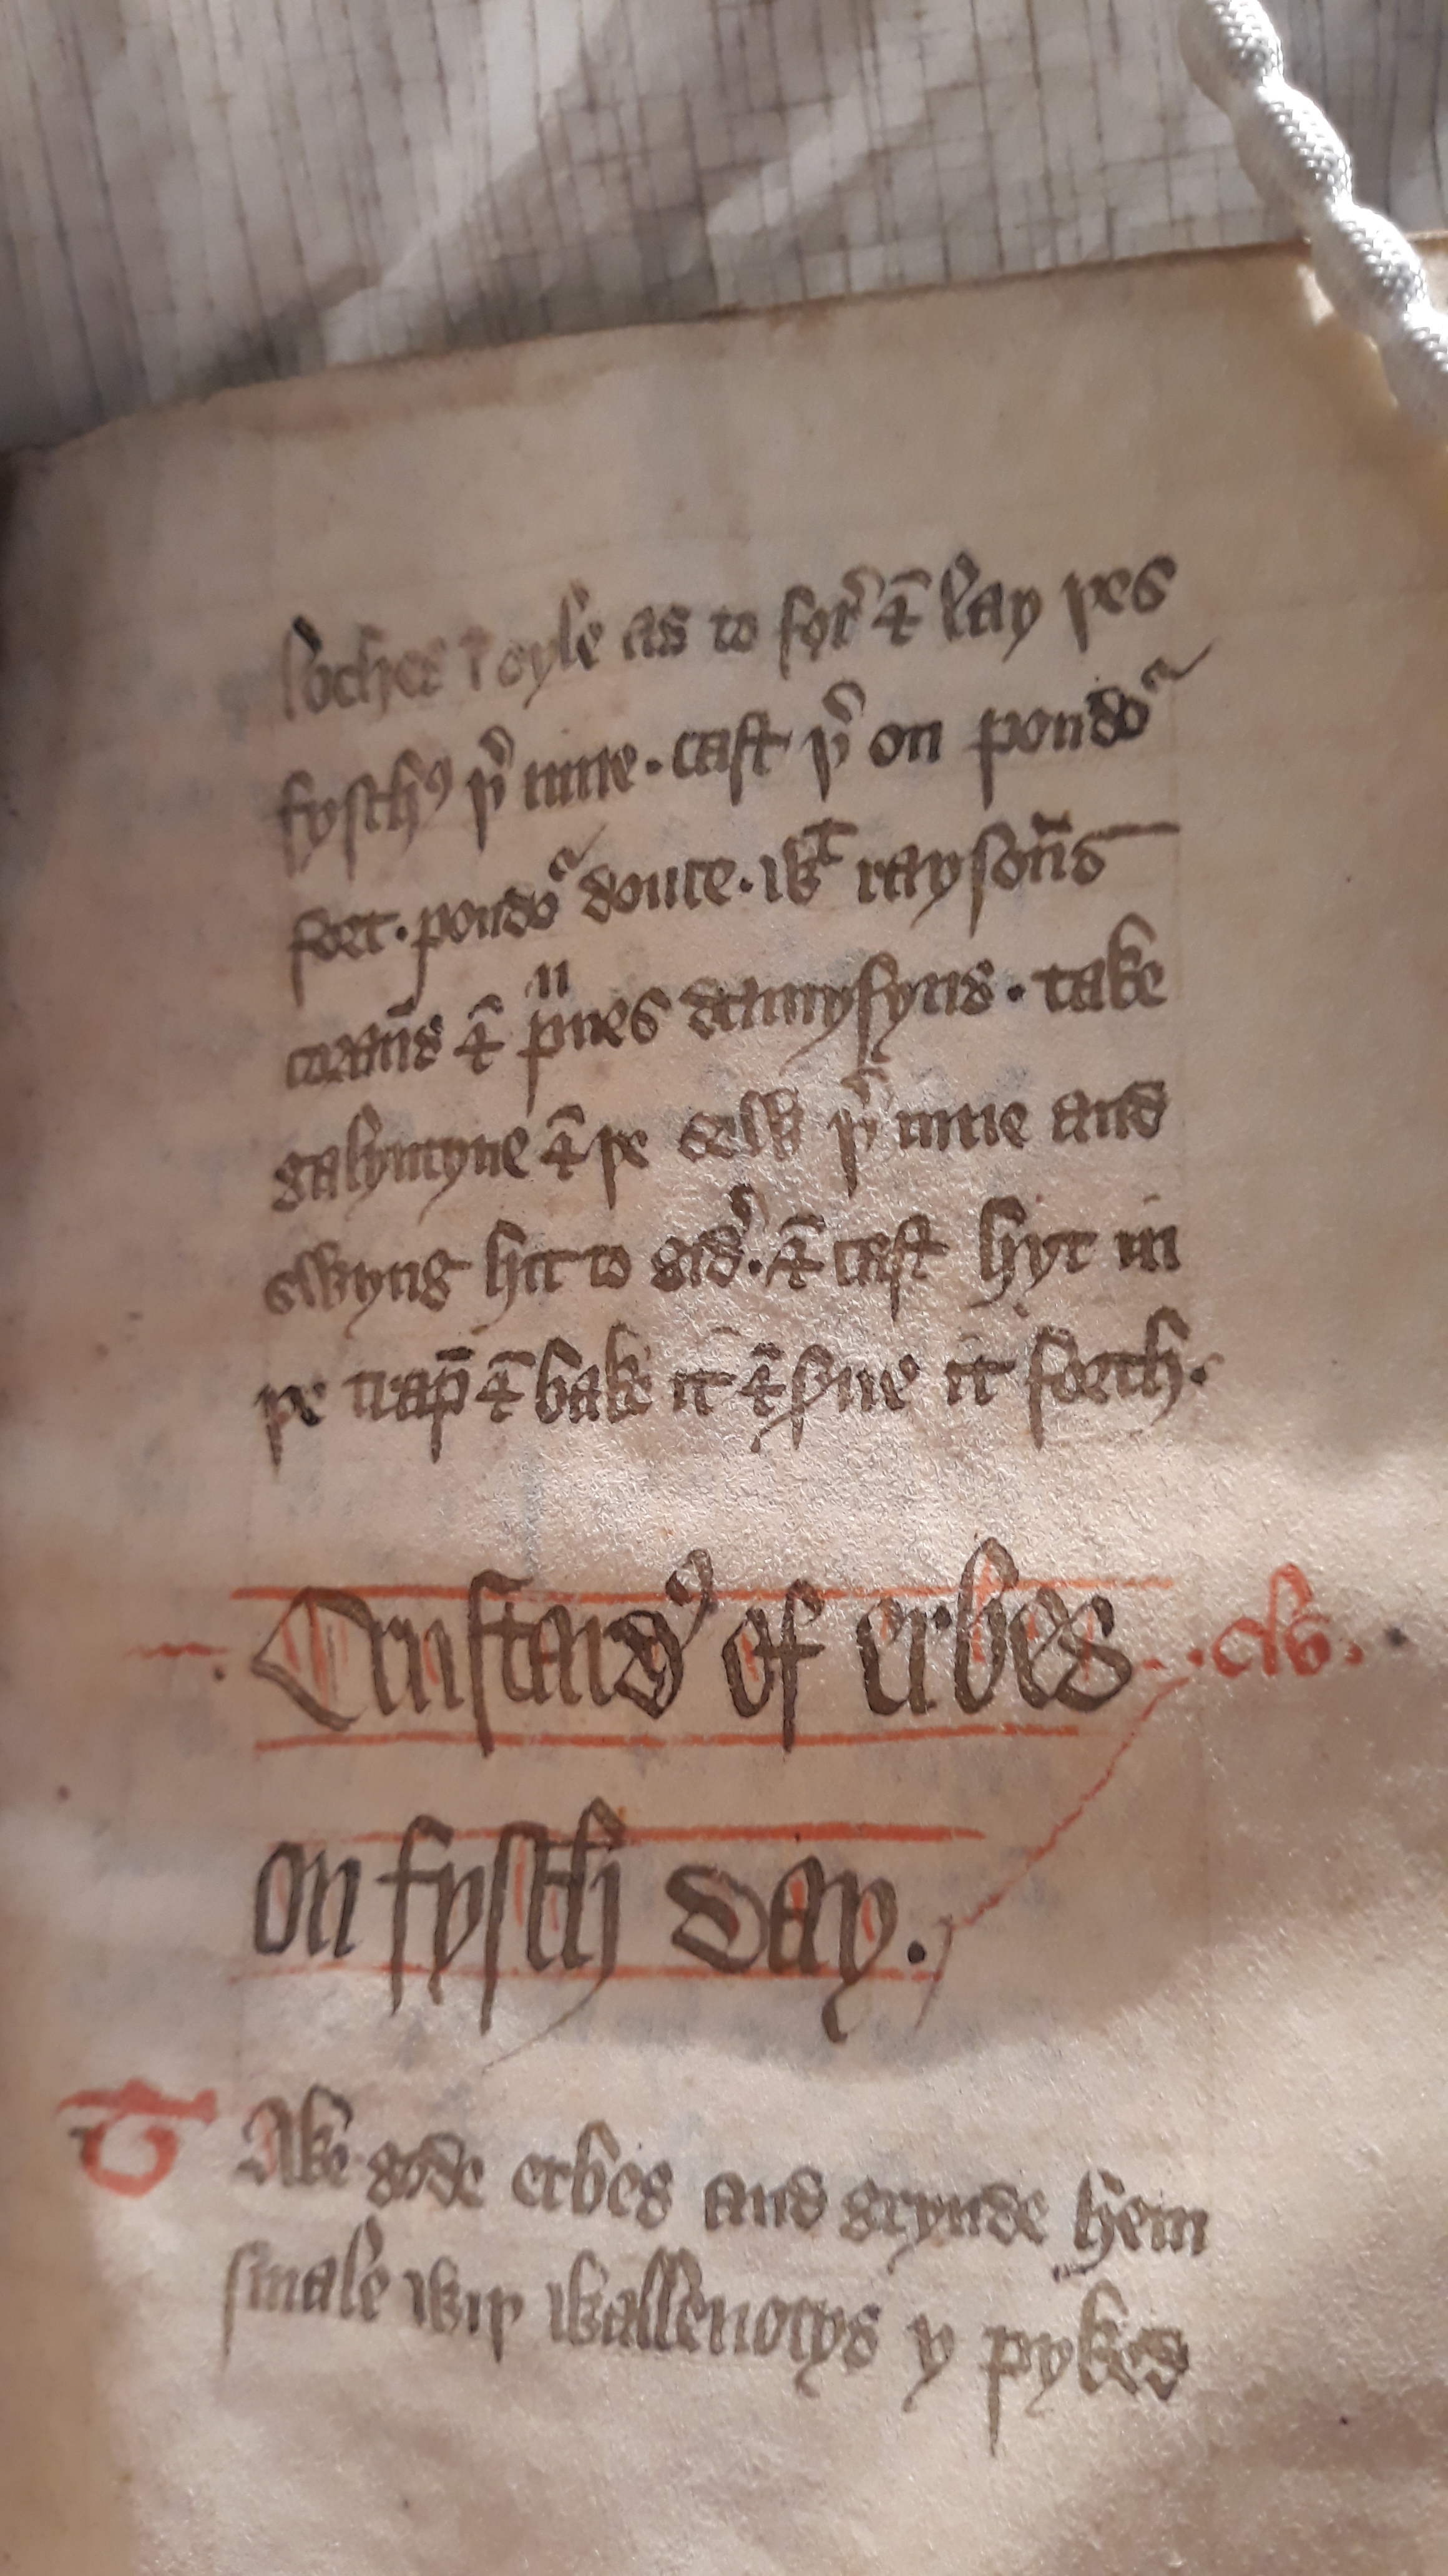 loches i oyle as to forꝰ & lay þes
fyschꝰ þꝰ inne. cast þꝰ on poudoꝰ
fort. poudoꝰ douce. wᵗ raysoūs
coraūs & pͬunes damysyns. take
galyntyne & þe sew þꝰ inne and
swyng hit to gidꝰ. & cast hyt in
þe trap̄ & bake it & sꝰue it forth.
Crustardꝰ of erbes .clv.
on fysch day.
Take gode erbes and grynde hem
smale wiþ wallenotys y pyked